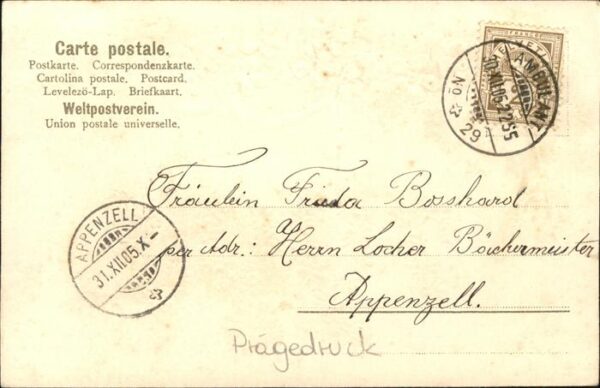 Carte postale.
Postkarte. Correspondenzkarte.
Cartolina postale. Postcard.
Levelezö-Lap. Briefkaart.
Weltpostverein.
Union postale universelle.
FRANCO
HELVETIA
AMBULANT
30.XII.05.2255
No 29
APPENZELL
31.XII.05.X-
Fräulein Frida Bosshard
per Adr.: Herrn Locher Bäckermeister
Appenzell.
Prägedruck